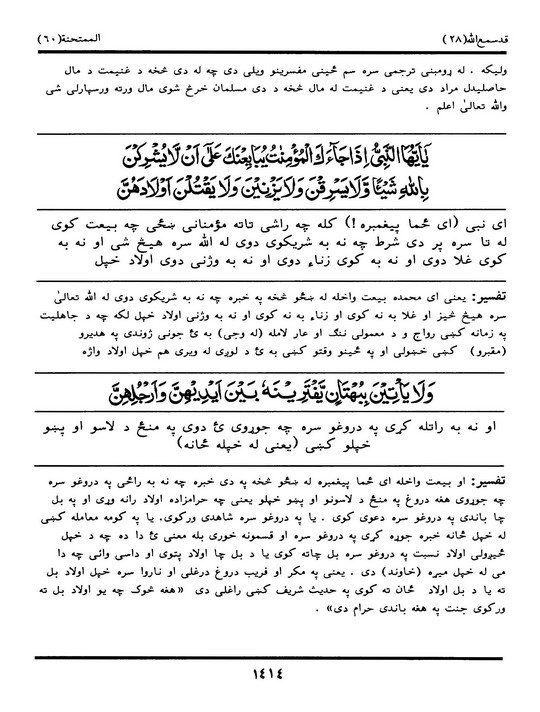 قدسمع الله (٢٨)
الممتحنة (٦٠)
وليکه . له ړومبني ترجمې سره سم ځينې مفسرينو ويلې دي چه له دې څخه د غنيمت د مال
حاصليدل مراد دي يعنې د غنيمت له مال څخه د دې مسلمان خرڅ شوى مال ورته ورسپارلى شي
والله تعالىٰ اعلم .
يٰٓاَيُّهَا النَّبِيُّ اِذَا جَآءَكَ الْمُؤْمِنٰتُ يُبَايِعْنَكَ عَلٰٓى اَنْ لَّا يُشْرِكْنَ
بِاللهِ شَيْئًا وَّلَا يَسْرِقْنَ وَلَا يَزْنِيْنَ وَلَا يَقْتُلْنَ اَوْلَادَهُنَّ
اې نبي (اې ځما پيغمبره !) کله چه راشي تاته مؤمنانې ښځې چه بيعت کوي
له تا سره پر دې شرط چه نه به شريکوي دوى له الله سره هيڅ شى او نه به
کوي غلا دوى او نه به کوي زناء دوى او نه به وژني دوى اولاد خپل
تفسير: يعنې اى محمده بيعت واخله له ښځو څخه په خبره چه نه به شريکوي دوى له الله تعالىٰ
سره هيڅ څيز او غلا به نه کوي او زناء به نه کوي او نه به وژني اولاد خپل لکه چه د جاهليت
په زمانه کښې رواج و د معمولي ننګ او عار لامله (له وجې) به ئ جونې ژوندۍ په هديرو
(مقبرو) کښې ښخولې او په ځينو وقتو کښې به ئ د لوږې له ويرې هم خپل اولاد واژه
وَلَا يَاْتِيْنَ بِبُهْتَانٍ يَّفْتَرِيْنَهٗ بَيْنَ اَيْدِيْهِنَّ وَاَرْجُلِهِنَّ
او نه به راتله کړي په دروغو سره چه جوړوي ئ دوى په منځ د لاسو او پښو
خپلو کښې (يعنې له خپله ځانه)
تفسير: او بيعت واخله اى ځما پيغمبره له ښځو څخه په دې خبره چه نه به راځي په دروغو سره
چه جوړوي هغه دروغ په منځ د لاسونو او پښو خپلو يعنې چه حرامزاده اولاد رانه وړي او په بل
چا باندې په دروغو سره دعوى کوي . يا په دروغو سره شاهدي ورکوي. يا په کومه معامله کښې
له خپل ځانه خبره جوړه کړي په دروغو سره او قسمونه خورې بله معنى ئ دا ده چه د خپل
ځيږولي اولاد نسبت په دروغو سره بل چاته کوي يا د بل چا اولاد پټوي او داسې وائي چه دا
مې له خپل ميړه (خاوند) دى . يعنې په مکر او فريب دروغ درغلي او ناروا سره خپل اولاد بل
ته يا د بل اولاد ځان ته کوي په حديث شريف کښې راغلي دي «هغه څوک چه يو اولاد بل ته
ورکوي جنت په هغه باندې حرام دى» .
١٤١٤